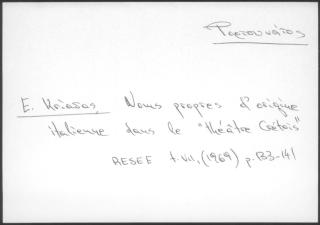 Φορτουνάτος
Ε. Κριαρας, Noms propres d'origine
italienne dans le "théâtre Crétois"
RESEE t. VII, (1969) p. 133-141